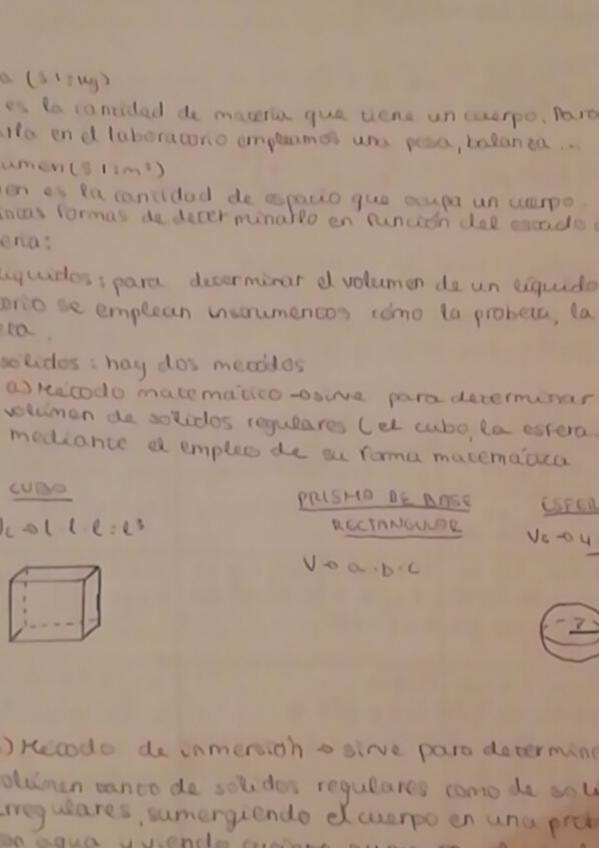 a (SI: kg)
es la cantidad de materia que tiene un cuerpo. Para
arla en el laboratorio empleamos una pesa, balanza...
umen (SI: m³)
en es la cantidad de espacio que ocupa un cuerpo.
intas formas de determinarlo en función del estado d
eria:
líquidos: para determinar el volumen de un líquido
orio se emplean instrumentos cómo la probeta, la
eta.
sólidos: hay dos metódos
a) Método matemático → sirve para determinar
volúmen de sólidos regulares (el cubo, la esfera
mediante el empleo de su forma matemática
CUBO PRISMO DE BASE ESFER
RECTANGULAR
Vc → l · l · l = l³ V → a · b · c Ve → 4
r
) Método de inmersión → sirve para determina
volúmen tanto de sólidos regulares como de sóli
irregulares, sumergiendo el cuerpo en una prob
con agua y viendo